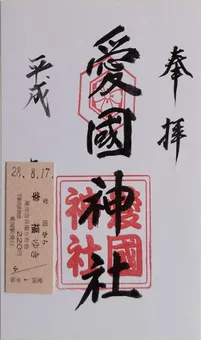 奉拝
愛國神社
平成
愛國
神社
28.8.17
愛国から
幸福ゆき
220円